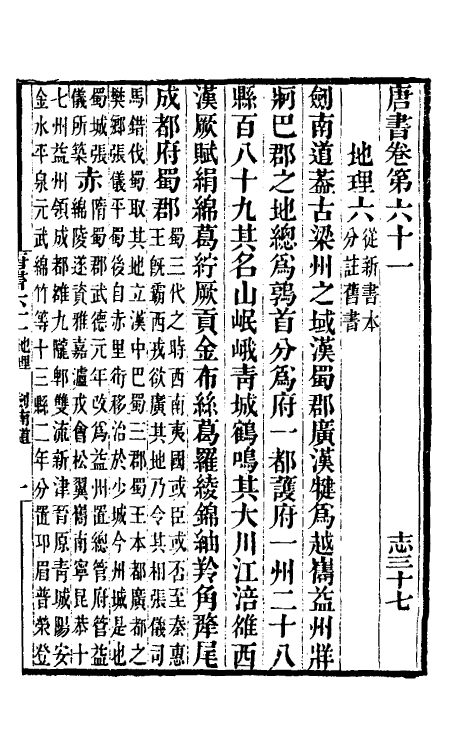 唐書卷第六十一　志三十七
地理六
從新書本
分註舊書
劍南道葢古梁州之域漢蜀郡廣漢犍爲越巂益州牂
牁巴郡之地總爲鶉首分爲府一都護府一州二十八
縣百八十九其名山岷峨靑城鶴鳴其大川江涪雒西
漢厥賦絹綿葛紵厥貢金布絲葛羅綾錦紬羚角犛尾
成都府蜀郡
蜀三代之時西南夷國或臣或否至秦惠
王旣霸西戎欲廣其地乃令其相張儀司
馬錯伐蜀取其地立漢中巴蜀三郡蜀王本都廣都之
樊鄉張儀平蜀後自赤里街移治於少城今州城是也
蜀城張
儀所築
赤
隋蜀郡武德元年改爲益州置總管府管益
綿陵遂資雅嘉瀘戎會松翼巂南寧昆恭十
七州益州領成都雒九隴郫雙流新津晉原靑城陽安
金水平泉元武綿竹等十三縣二年分置邛眉普榮登
唐書六十一　地理　劍南道　一